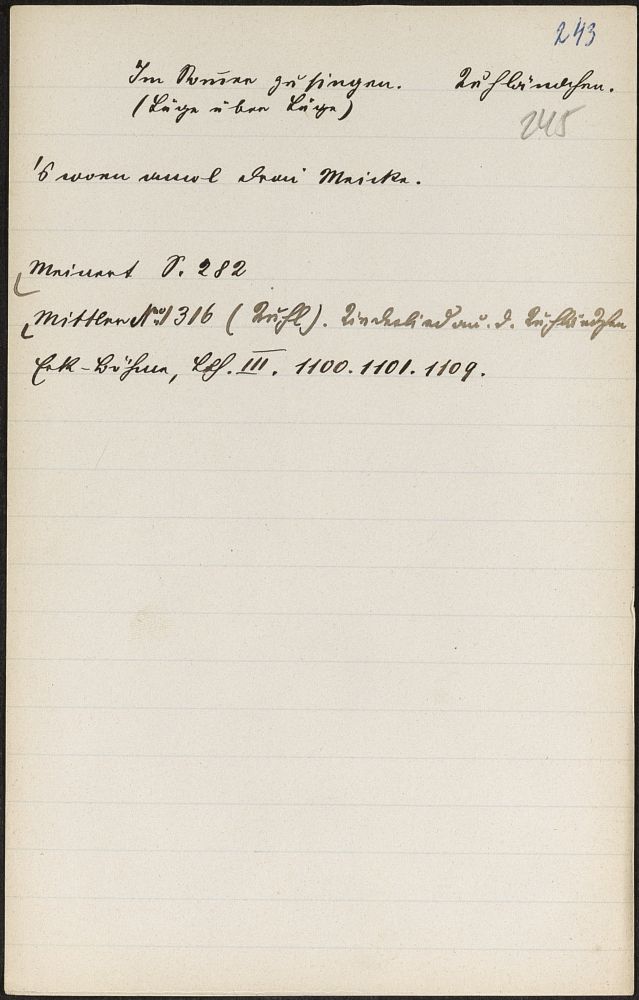 243
Im Sommer zu singen. Kuhländchen.
(Lüge über Lüge)
245
's woen amol drai Meicke.
Meinert S. 282
Mittler No. 1316 (Kuhl). Kinderlied aus d. Kuhländchen
Erk-Böhme, Lh. III. 1100. 1101. 1109.